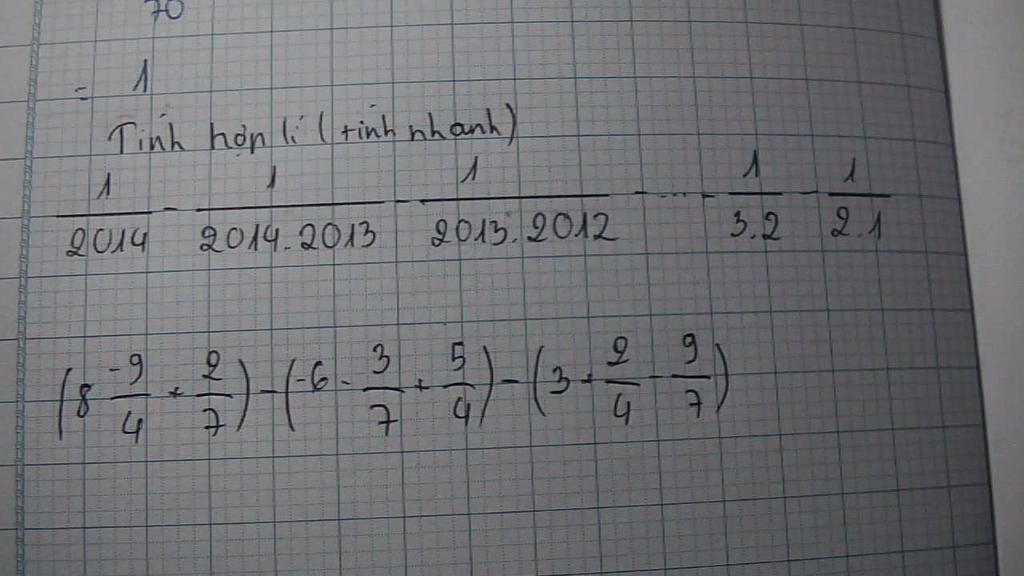 70
= 1
Tính hợp lí (tính nhanh)
1/2014 - 1/2014.2013 - 1/2013.2012 - ... - 1/3.2 - 1/2.1
(8 -9/4 + 2/7) - (-6 - 3/7 + 5/4) - (3 + 2/4 - 9/7)